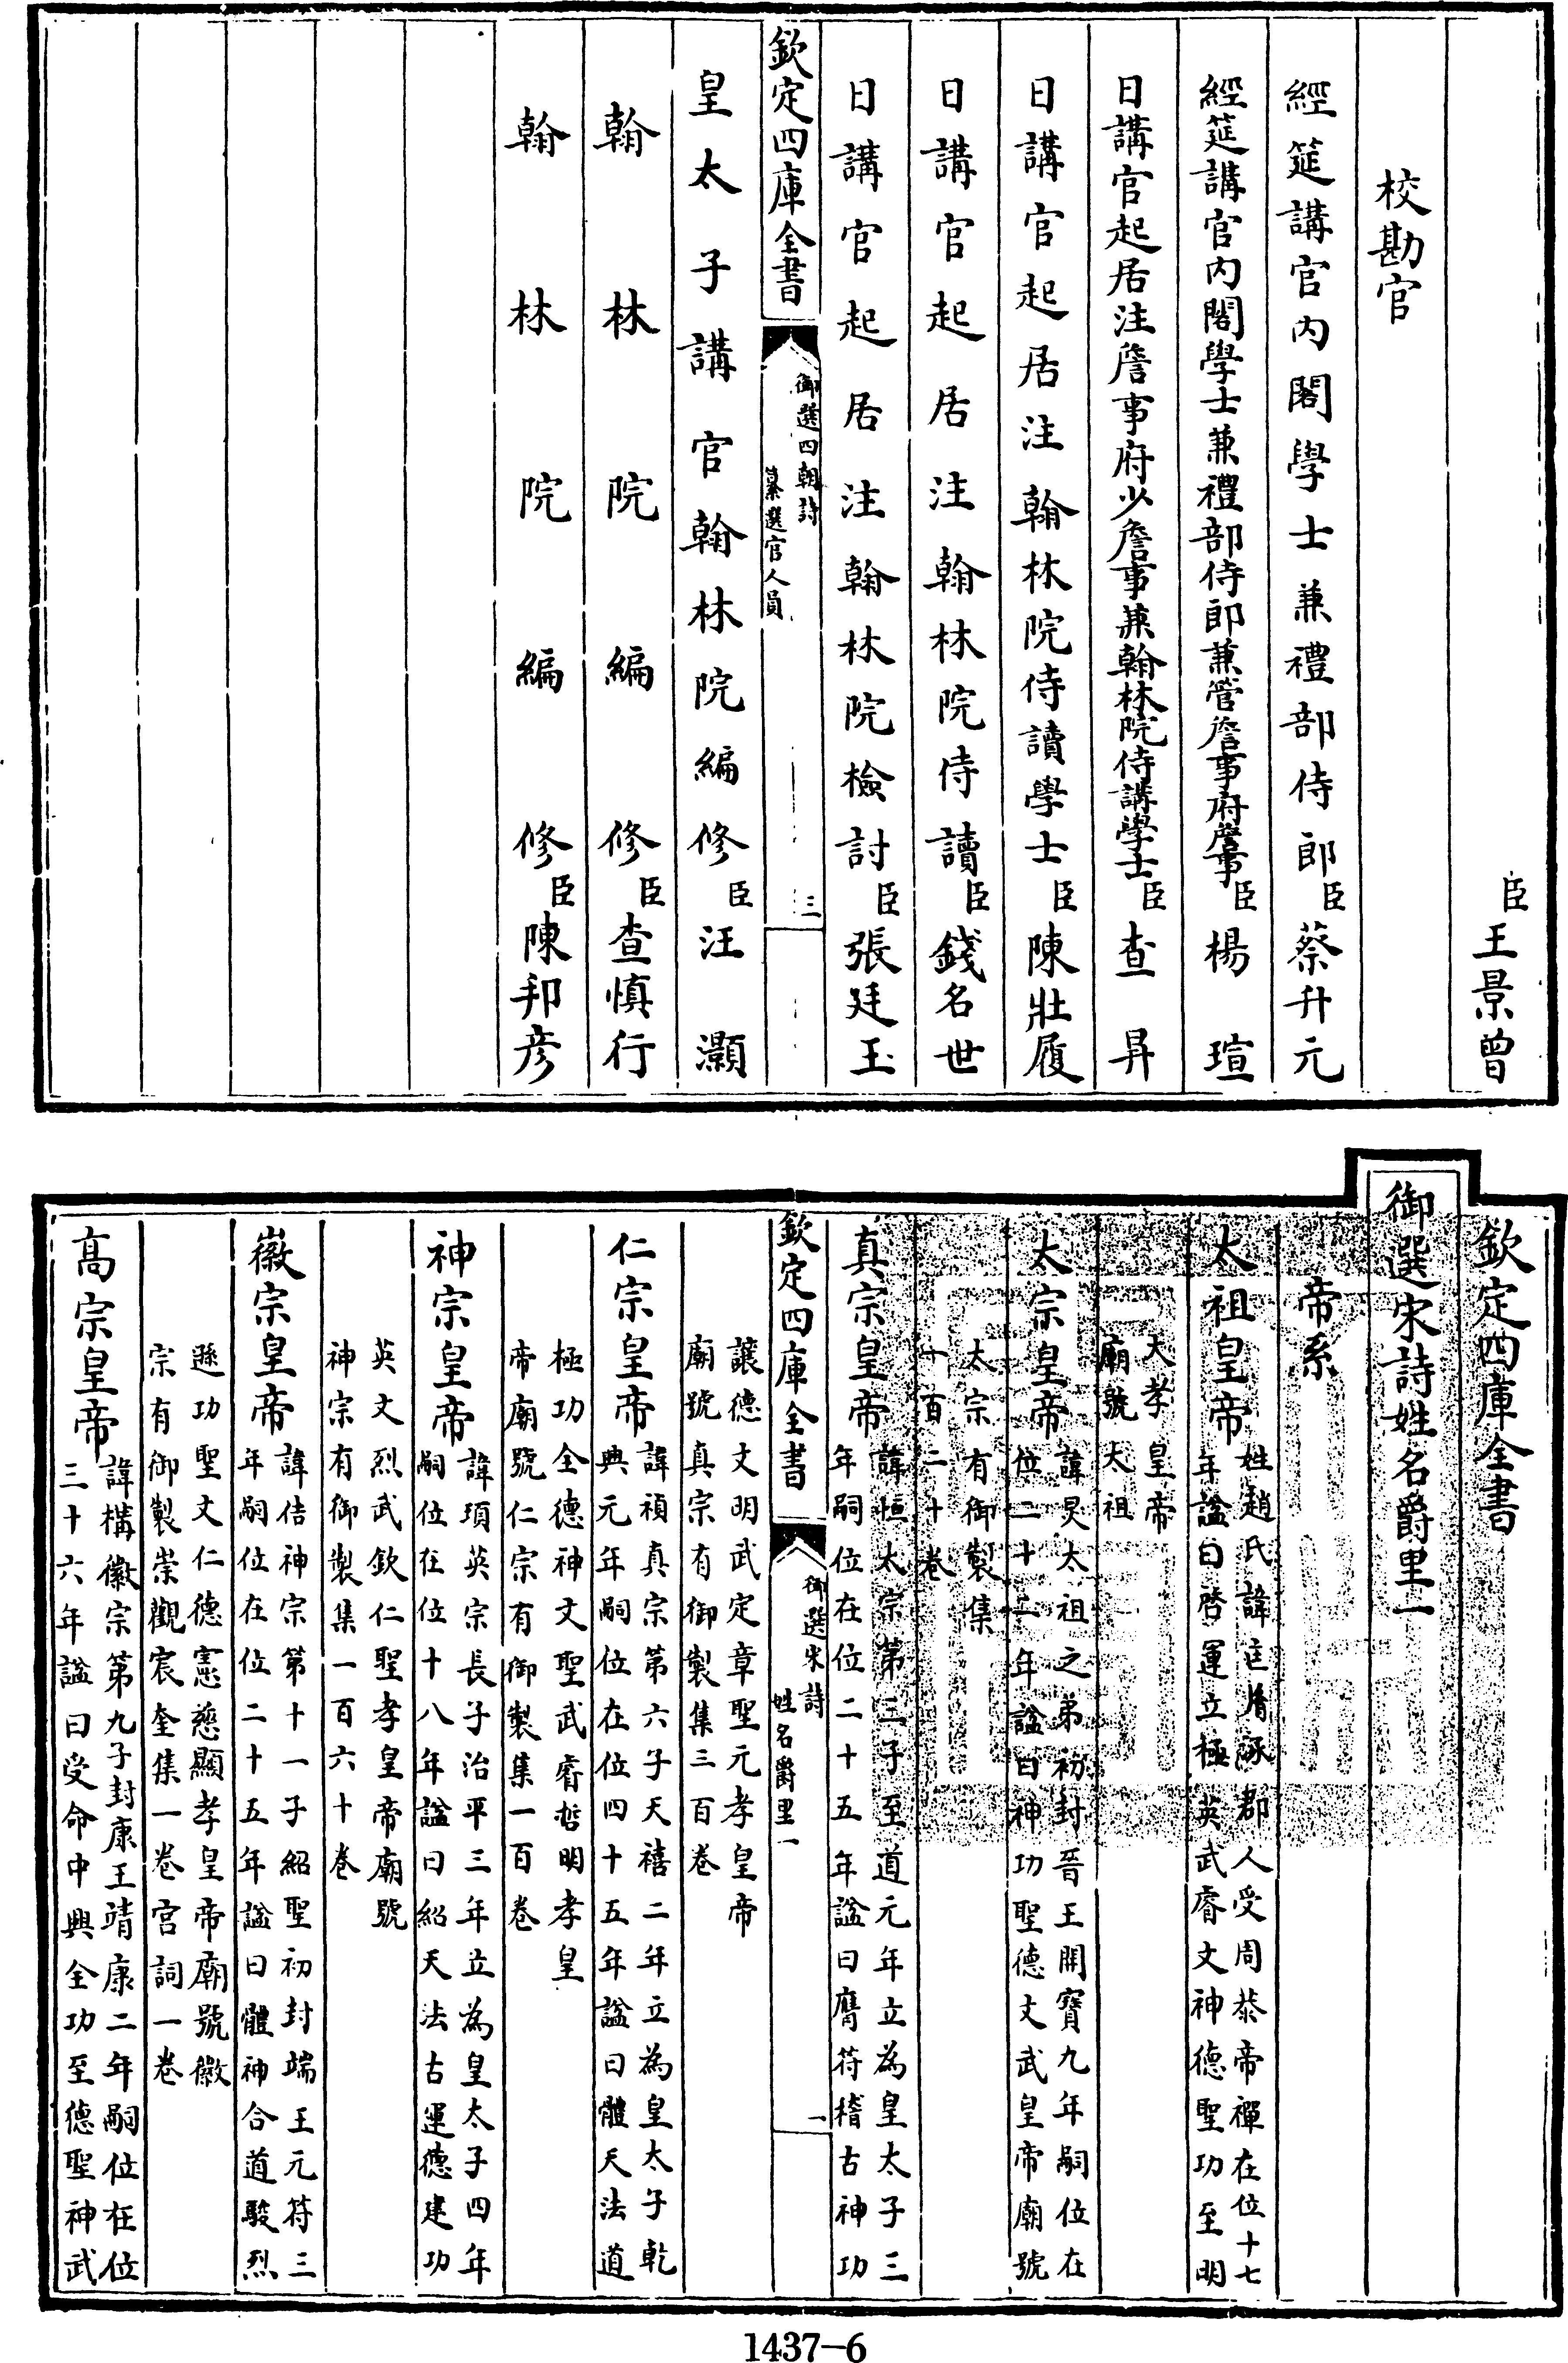 臣王景曾
校勘官
經筵講官內閣學士兼禮部侍郎臣蔡升元
經筵講官內閣學士兼禮部侍郎兼管詹事府詹事臣楊瑄
日講官起居注詹事府少詹事兼翰林院侍講學士臣查昇
日講官起居注翰林院侍讀學士臣陳壯履
日講官起居注翰林院侍讀臣錢名世
日講官起居注翰林院檢討臣張廷玉
欽定四庫全書
御選四朝詩
纂選官人員
三
皇太子講官翰林院編修臣汪灝
翰林院編修臣查慎行
翰林院編修臣陳邦彦
欽定四庫全書
御選宋詩姓名爵里一
帝系
太祖皇帝
姓趙氏諱匡胤涿郡人受周恭帝禪在位十七
年諡曰啓運立極英武睿文神德聖功至明
大孝皇帝
廟號太祖
太宗皇帝
諱炅太祖之弟初封晉王開寶九年嗣位在
位二十二年諡曰神功聖德文武皇帝廟號
太宗有御製集
一百二十卷
真宗皇帝
諱恒太宗第三子至道元年立為皇太子三
年嗣位在位二十五年諡曰膺符稽古神功
欽定四庫全書
御選宋詩
姓名爵里一
一
讓德文明武定章聖元孝皇帝
廟號真宗有御製集三百卷
仁宗皇帝
諱禎真宗第六子天禧二年立為皇太子乾
興元年嗣位在位四十五年諡曰體天法道
極功全德神文聖武睿哲明孝皇
帝廟號仁宗有御製集一百卷
神宗皇帝
諱頊英宗長子治平三年立為皇太子四年
嗣位在位十八年諡曰紹天法古運德建功
英文烈武欽仁聖孝皇帝廟號
神宗有御製集一百六十卷
徽宗皇帝
諱佶神宗第十一子紹聖初封端王元符三
年嗣位在位二十五年諡曰體神合道駿烈
遜功聖文仁德憲慈顯孝皇帝廟號徽
宗有御製崇觀宸奎集一卷宫詞一卷
高宗皇帝
諱構徽宗第九子封康王靖康二年嗣位在位
三十六年諡曰受命中興全功至德聖神武
1437-6